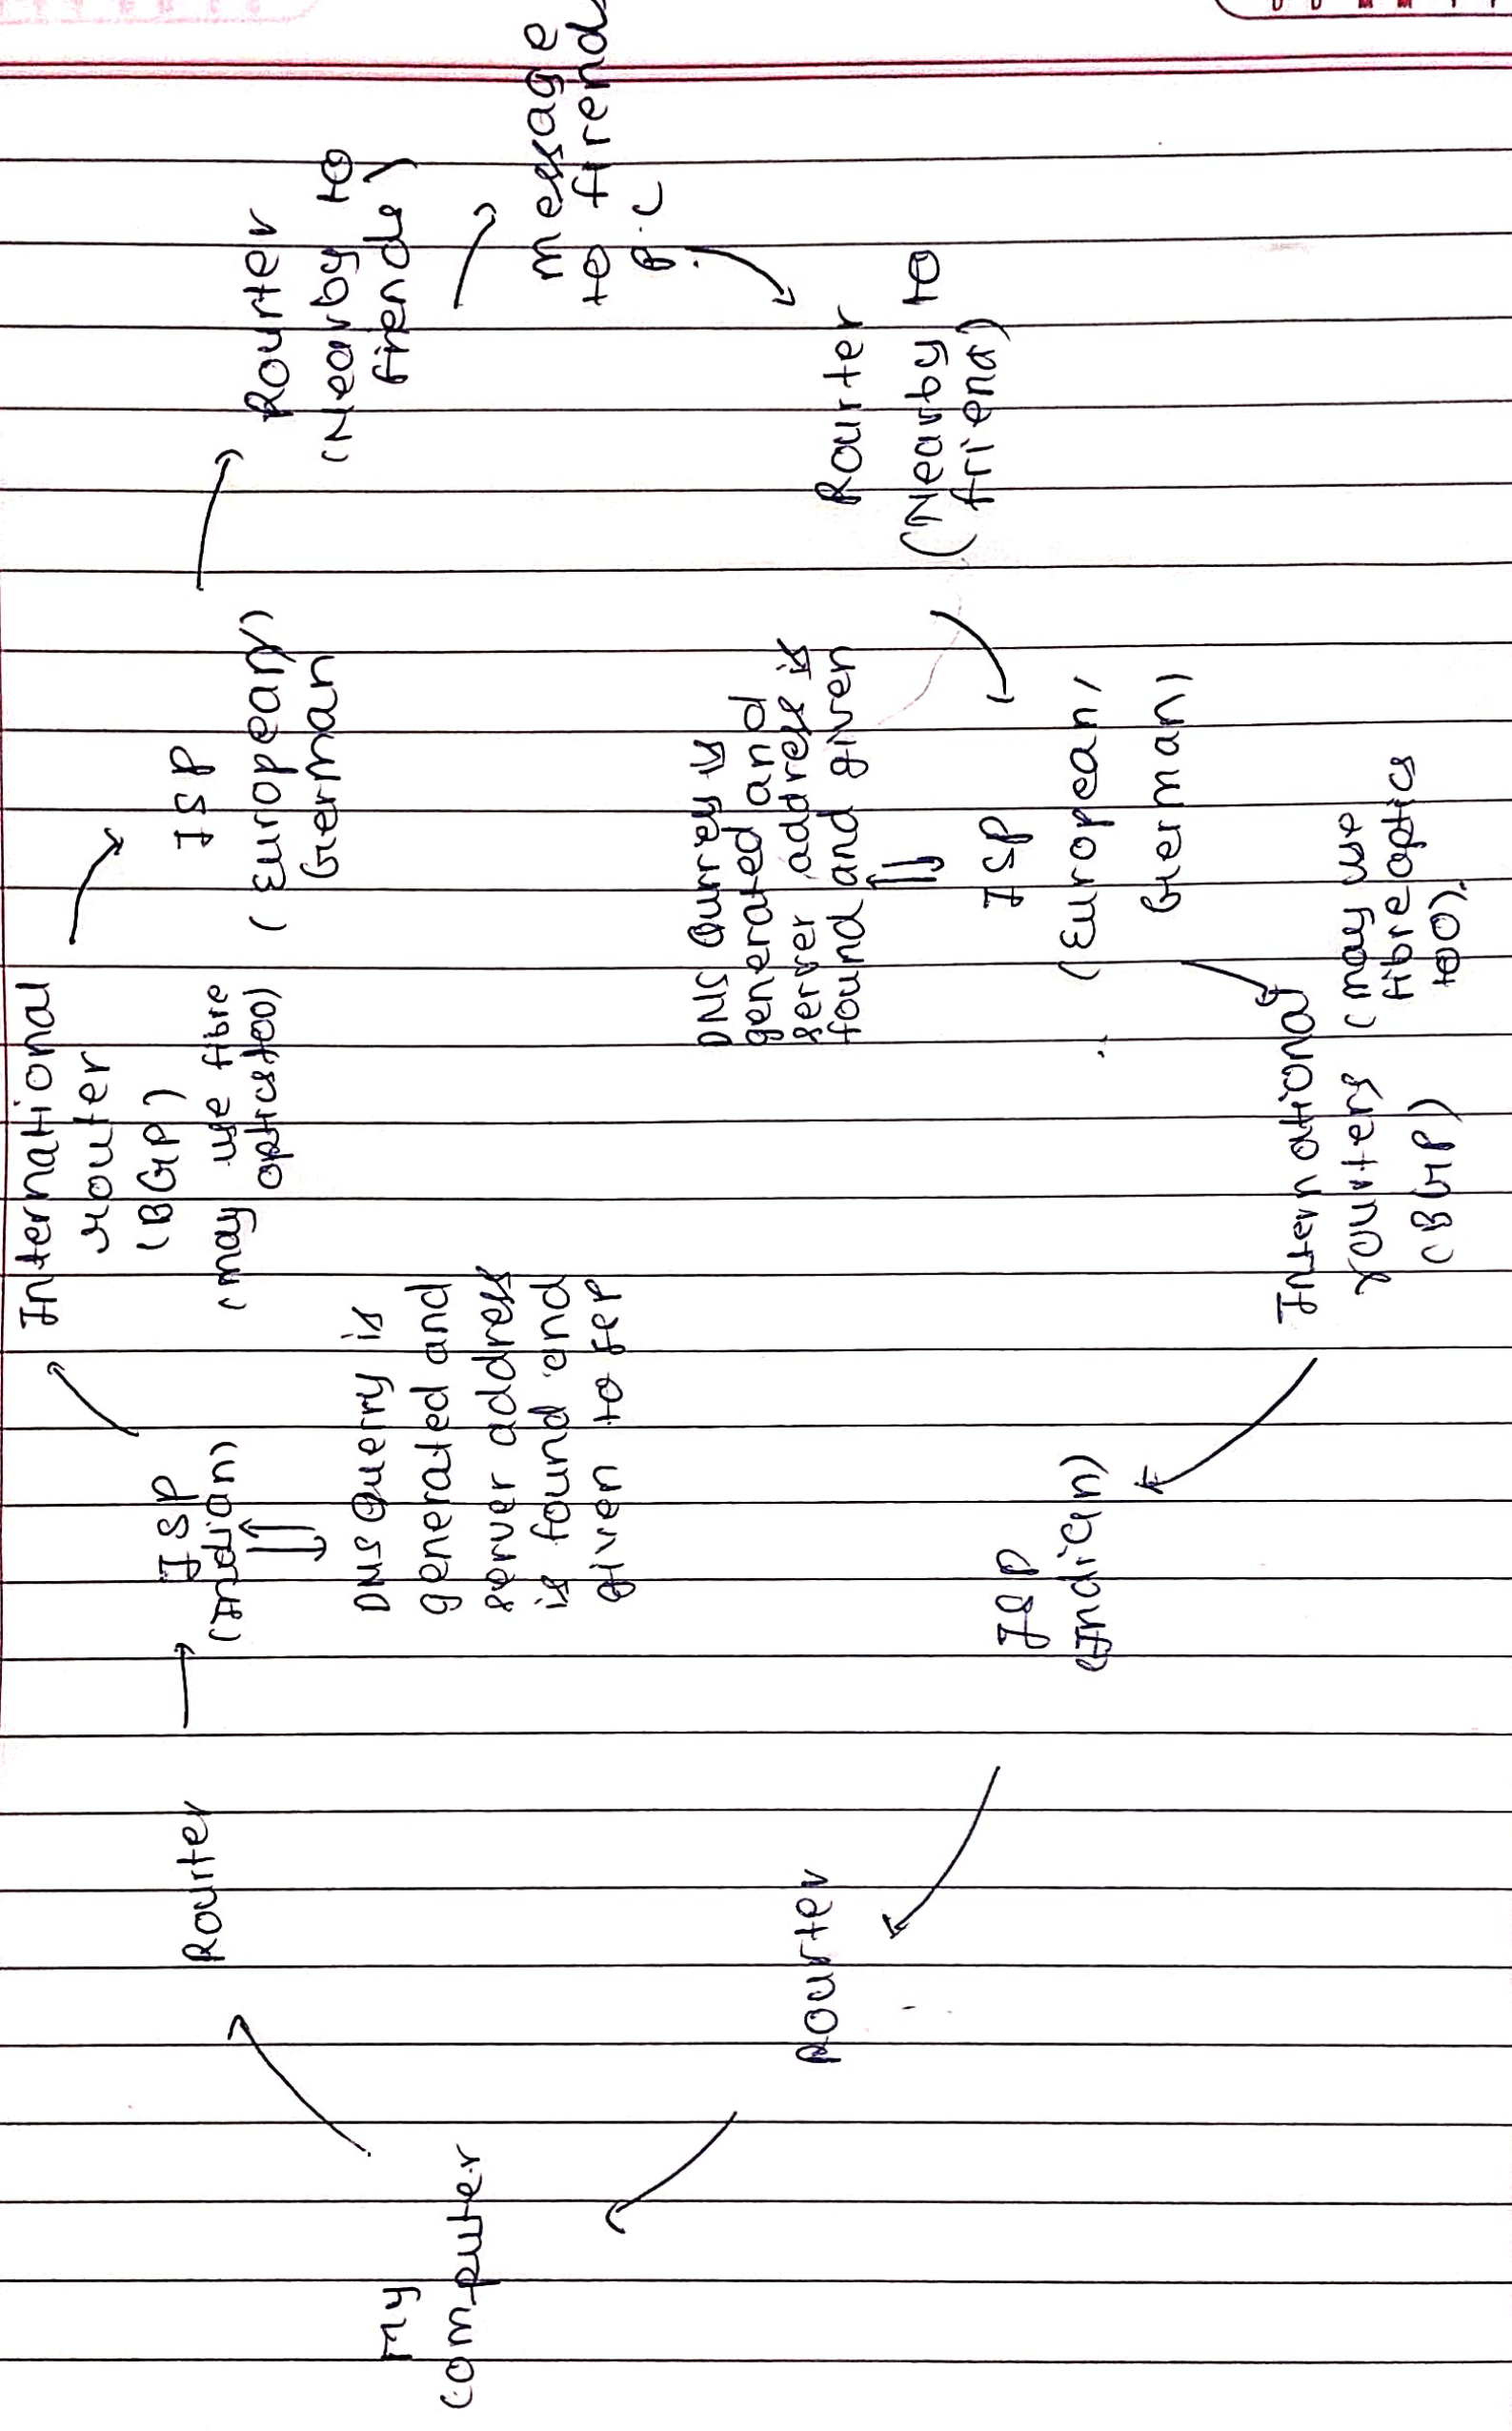 My
computer
Rourter
ISP
(Indian)
DNS Querry is
generated and
server address
is found and
given to ISP
International
router
(BGP)
(may use fibre
optics too)
ISP
(European)
German
Rourter
(Nearby to
firends)
message
to firend
P.C
Rourter
(Nearby to
friend)
DNS Qurrey is
generated and
server address is
found and given
ISP
(European/
German)
International
routers (may use
fibre optics
too).
(BGP)
ISP
(Indian)
Rourter